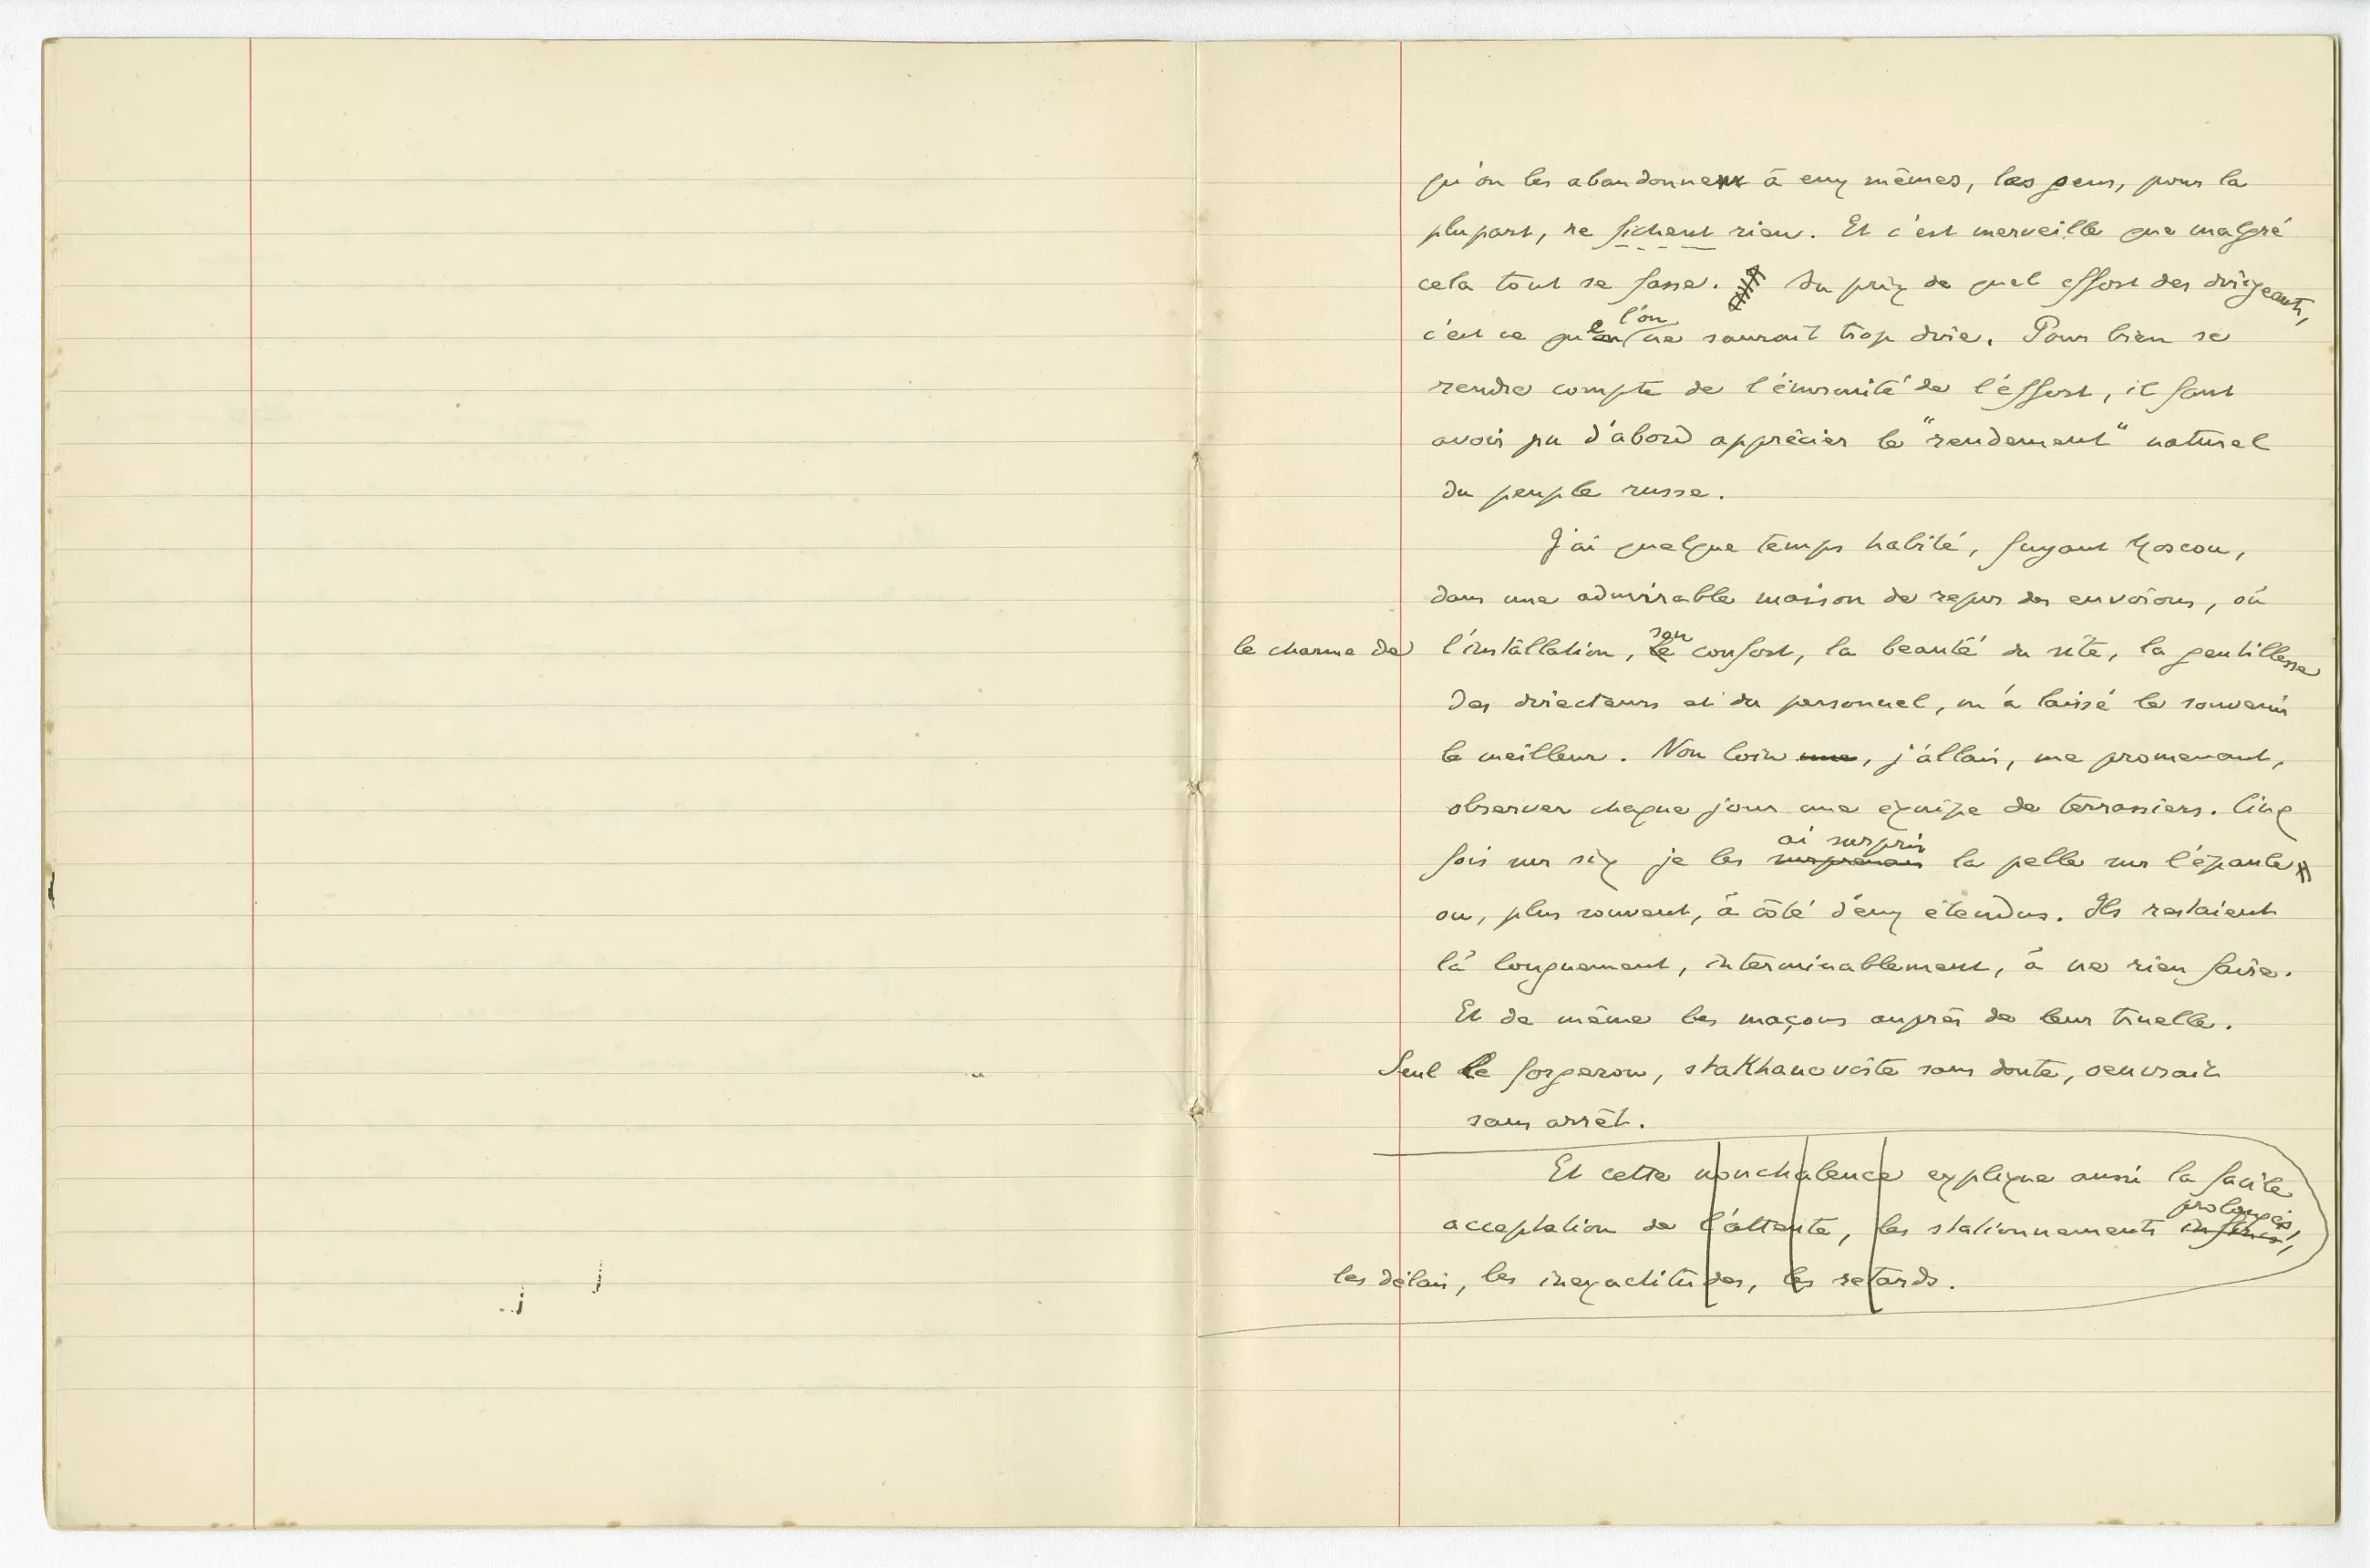 qu'on les abandonne à eux mêmes, les gens, pour la
plupart, ne fichent rien. Et c'est merveille que malgré
cela tout se fasse. Au prix de quel effort des dirigeants,
c'est ce que l'on ne saurait trop dire. Pour bien se
rendre compte de l'énormité de l'effort, il faut
avoir pu d'abord apprécier le "rendement" naturel
du peuple russe.
J'ai quelque temps habité, fuyant Moscou,
dans une admirable maison de repos des environs, où
le charme de l'installation, son confort, la beauté du site, la gentillesse
des directeurs et du personnel, m'a laissé le souvenir
le meilleur. Non loin une, j'allais, me promenant,
observer chaque jour une équipe de terrassiers. Cinq
fois sur six je les surprenais ai surpris la pelle sur l'épaule
ou, plus souvent, à côté d'eux étendus. Ils restaient
là longuement, interminablement, à ne rien faire.
Et de même les maçons auprès de leur truelle.
Seul le forgeron, stakhanoviste sans doute, oeuvrait
sans arrêt.
Et cette nonchalence explique aussi la facile
acceptation de l'attente, les stationnements prolongés,
les délais, les inexactitudes, les retards.